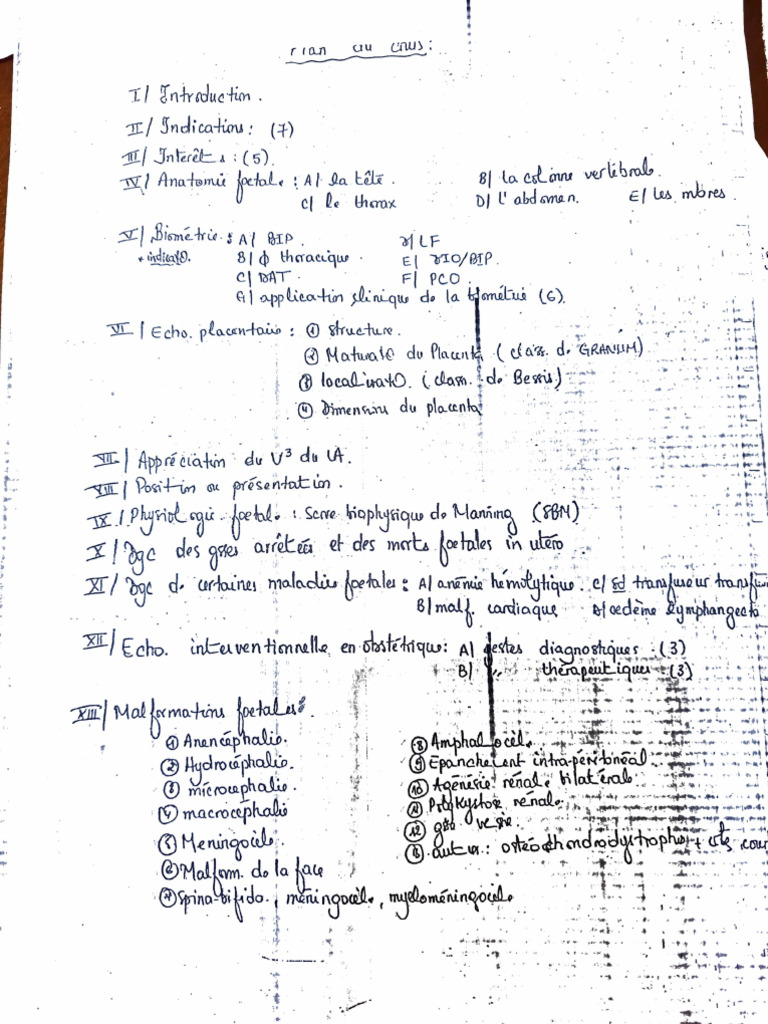 Plan du cours :
I/ Introduction.
II/ Indications : (7)
III/ Interêts : (5).
IV/ Anatomie foetale : A/ la tête. B/ la colonne vertébrale.
C/ le thorax D/ l'abdomen. E/ les mbres.
V/ Biométrie : A/ BIP. LF
* indicat°. B/ ϕ thoracique. E/ DIO/BIP.
C/ DAT. F/ PCO.
G/ application clinique de la biométrie (6).
VI/ Echo. placentaire : ① structure.
② Maturat° du Placenta (class. de GRANUM)
③ localisat°. (class. de Bessis)
④ Dimensions du placenta
VII/ Appréciation du V³ du LA.
VIII/ Position ou présentation.
IX/ Physiologie foetale : Score biophysique de Manning (SBM)
X/ Dgc des gsses arrêtées et des morts foetales in utéro
XI/ Dgc de certaines maladies foetales : A/ anémie hémolytique. C/ sd transfuseur
B/ malf. cardiaque D/ oedème
XII/ Echo. interventionnelle en obstétrique : A/ gestes diagnostiques : (3)
B/ " thérapeutiques (3)
XIII/ Malformations foetales :
① Anencéphalie. ⑧ Amphalocèle.
② Hydrocéphalie. ⑨ Epanchement intra-péritonéal.
③ microcephalie. ⑩ Agénésie rénale bilatérale
④ macrocéphalie ⑪ Polykystose rénale.
⑤ Meningocèle. ⑫ gsse vessie.
⑥ Malform. de la face ⑬ autres : ostéochondrodystrophies +
⑦ Spina-bifida, méningocèle, myéloméningocèle